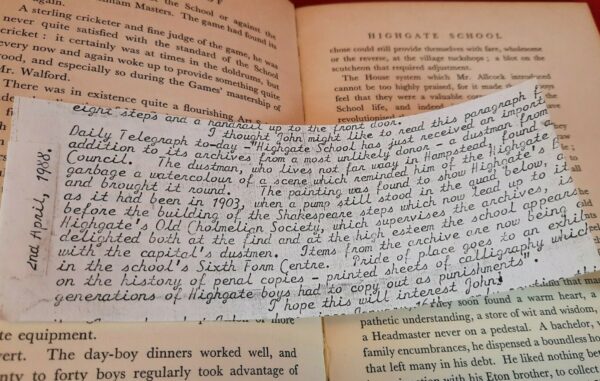 the School or against the
Masters. The game had found its
A sterling cricketer and fine judge of the game, he was
never quite satisfied with the standard of the School
cricket : it certainly was at times in the doldrums, but
every now and again woke up to provide something quite
ood, and especially so during the Games' mastership of
Mr. Walford.
There was in existence quite a flourishing Art S
HIGHGATE SCHOOL
those could still provide themselves with fare, wholesome
or the reverse, at the village tuckshops ; a blot on the
scutcheon that required adjustment.
The House system which Mr. Allcock introduced
cannot be too highly praised, for it made
feel that they were a valuable
School life, and indeed
revolutionised
2nd April, 1988.
eight steps and a handrail up to the front door.
I thought John might like to read this paragraph
Daily Telegraph to-day - "Highgate School has just received an import
addition to its archives from a most unlikely donor - a dustman from
Council. The dustman, who lives not far way in Hampstead, found a
garbage a watercolour of a scene which reminded him of the Highgate
and brought it round. The painting was found to show Highgate's
as it had been in 1903, when a pump still stood in the quad below, a
before the building of the Shakespeare steps which now lead up to it
Highgate's Old Cholmelian Society, which supervises the archives, is
delighted both at the find and at the high esteem the school appears
with the capital's dustmen. Items from the archive are now being
in the school's Sixth Form Centre. Pride of place goes to an exhib
on the history of penal copies - printed sheets of calligraphy which
generations of Highgate boys had to copy out as punishments".
I hope this will interest John!
te equipment.
vert. The day-boy dinners worked well, and
nty to forty boys regularly took advantage of
they soon found a warm heart, a
pathetic understanding, a store of wit and wisdom,
a Headmaster never on a pedestal. A bachelor,
family encumbrances, he dispensed a boundless ho
that left many in his debt. He liked nothing be
with his Eton brother, to collect